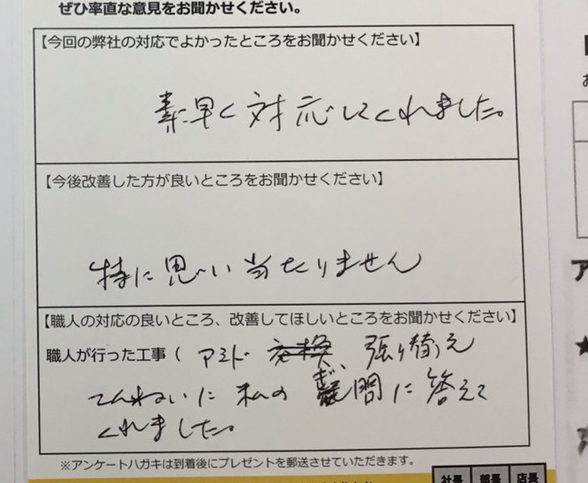 ぜひ率直な意見をお聞かせください。
【今回の弊社の対応でよかったところをお聞かせください】
素早く対応してくれました。
【今後改善した方が良いところをお聞かせください】
特に思い当たりません
【職人の対応の良いところ、改善してほしいところをお聞かせください】
職人が行った工事（ アミド 交換 張り替え
てんねいに 私の 質問に答えて
くれました。
※アンケートハガキは到着後にプレゼントを郵送させていただきます。
社長 部長 店長